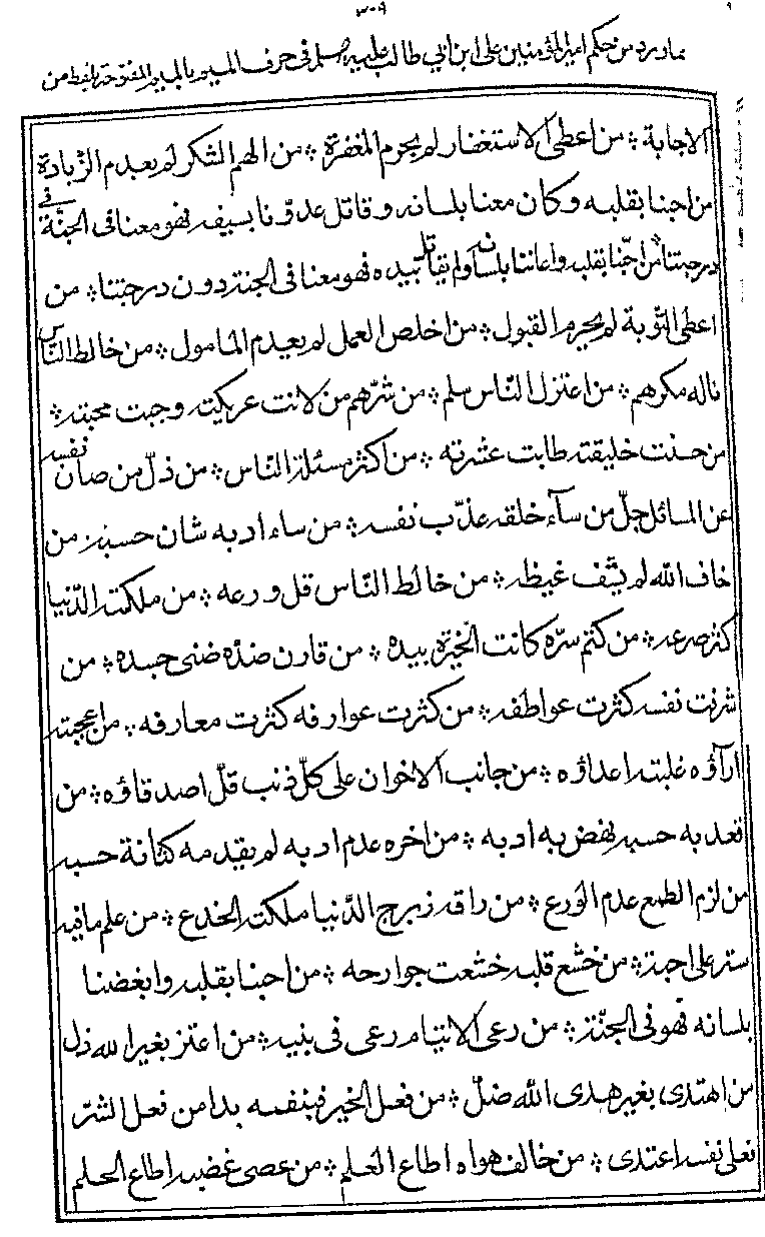 ٣٠٩
مما ورد من حكم امير المؤمنين علی ابن ابي طالب عليه السلم فی حرف الميم بالميم المفتوحة بلفظ من
الاجابة ؞ من اعطی الاستغفار لم يحرم المغفرة ؞ من الهم الشكر لم يعدم الزّيادة
من احبنا بقلبه وكان معنا بلسانه وقاتل عدوّنا بسيفه فهو معنا فی الجنّة فی
درجتنا ؞ من احبّنا بقلبه واعاننا بلسانه ولم يقاتل بيده فهو معنا فی الجنة دون درجتنا ؞ من
اعطی التّوبة لم يحرم القبول ؞ من اخلص العمل لم يعدم المامول ؞ من خالط النّاس
ناله مكرهم ؞ من اعتزل النّاس سلم ؞ من شرّهم من لانت عريكته وجبت محبته ؞
من حسنت خليقته طابت عشرته ؞ من اكثر مسئلة النّاس ؞ من ذلّ من صان نفسه
عن المسائل جلّ من سآء خلقه عذّب نفسه ؞ من ساء ادبه شان حسبه ؞ من
خاف الله لم يشف غيظه ؞ من خالط النّاس قل ورعه ؞ من ملكته الدّنيا
كثر صرعه ؞ من كتم سرّه كانت الخيرة بيده ؞ من قارن ضدّه ضنی جسده ؞ من
شرفت نفسه كثرت عواطفه ؞ من كثرت عوارفه كثرت معارفه ؞ من اعجبته
ارآؤه غلبته اعداؤه ؞ من جانب الاخوان علی كلّ ذنب قلّ اصدقاؤه ؞ من
قعد به حسبه نهض به ادبه ؞ من اخره عدم ادبه لم يقدمه كثافة حسبه
من لزم الطمع عدم الورع ؞ من راقه زبرج الدّنيا ملكته الخدع ؞ من علم ما فيه
ستر علی اخيه ؞ من خشع قلبه خشعت جوارحه ؞ من احبنا بقلبه وابغضنا
بلسانه فهو فی الجنّة ؞ من رعی الايتام رعی فی بنيه ؞ من اعتز بغير الله ذل
من اهتدی بغير هدی الله ضلّ ؞ من فعل الخير فبنفسه بدا من فعل الشرّ
فعلی نفسه اعتدی ؞ من خالف هواه اطاع العلم ؞ من عصی غضبه اطاع الحلم